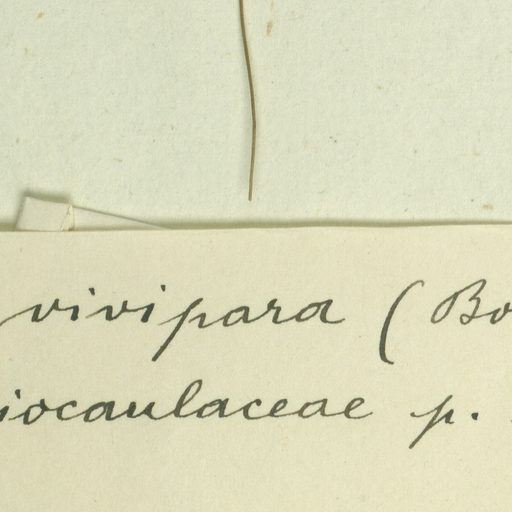 vivipara (Bo
iocaulaceae p.